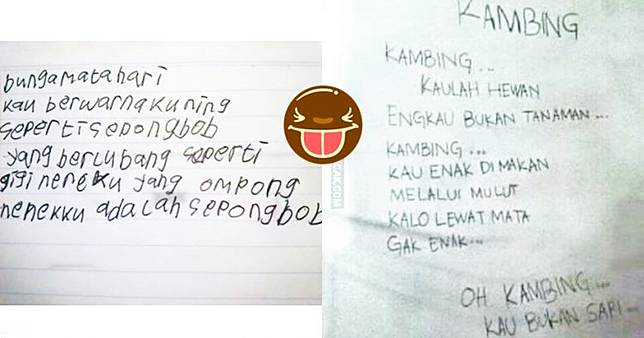 bunga matahari
kau berwarna kuning
seperti sepongbob
yang berlubang seperti
gigi nenekku yang ompong
nenekku adalah sepongbob
KAMBING
KAMBING...
KAULAH HEWAN
ENGKAU BUKAN TANAMAN...
KAMBING...
KAU ENAK DIMAKAN
MELALUI MULUT
KALO LEWAT MATA
GAK ENAK...
OH KAMBING...
KAU BUKAN SAPI...